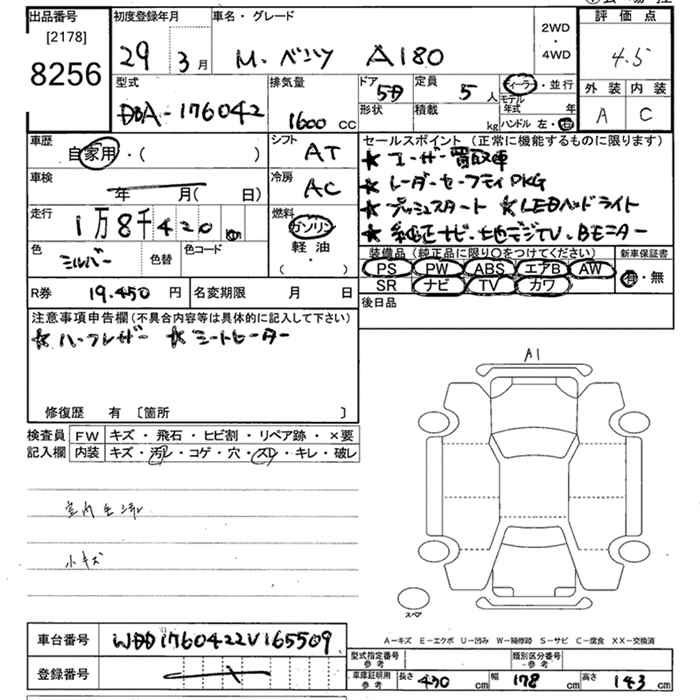 出品番号 初度登録年月 車名・グレード 2WD・4WD 評価点
[2178] 8256 29年3月 M.ベンツ A180 4.5
型式 排気量 ドア 5D 定員 5人 ディーラー・並行 外装 内装
DBA-176042 1600cc 形状 積載 kg モデル年式 年 ハンドル 左・右 A C
車歴 自家用・( ) シフト AT セールスポイント(正常に機能するものに限ります)
★ユーザー買取車
車検 年 月( 日) 冷房 AC ★レーダーセーフティPKG
走行 1万8千420km 燃料 ガソリン 軽油 ( ・ ) ★プッシュスタート ★LEDヘッドライト
★純正ナビ・地デジTV・Bモニター
色 シルバー 色替 色コード 装備品(純正品に限り○をつけてください) 新車保証書
PS PW ABS エアB AW 有・無
R券 19.450円 名変期限 月 日 SR ナビ TV カワ
後日品
注意事項申告欄(不具合内容等は具体的に記入して下さい)
★ハーフレザー ★シートヒーター
A1
修復歴 有 〔箇所 〕
検査員 FW キズ・飛石・ヒビ割・リペア跡・×要
記入欄 内装 キズ・汚レ・コゲ・穴・スレ・キレ・破レ
室内
小キズ
スペア
車台番号 WDD1760422V165509 A−キズ E−エクボ U−凹み W−補修跡 S−サビ C−腐食 XX−交換済
登録番号 型式指定番号 参考 類別区分番号 参考
車庫証明用 参考 長さ 430cm 幅 178cm 高さ 143cm